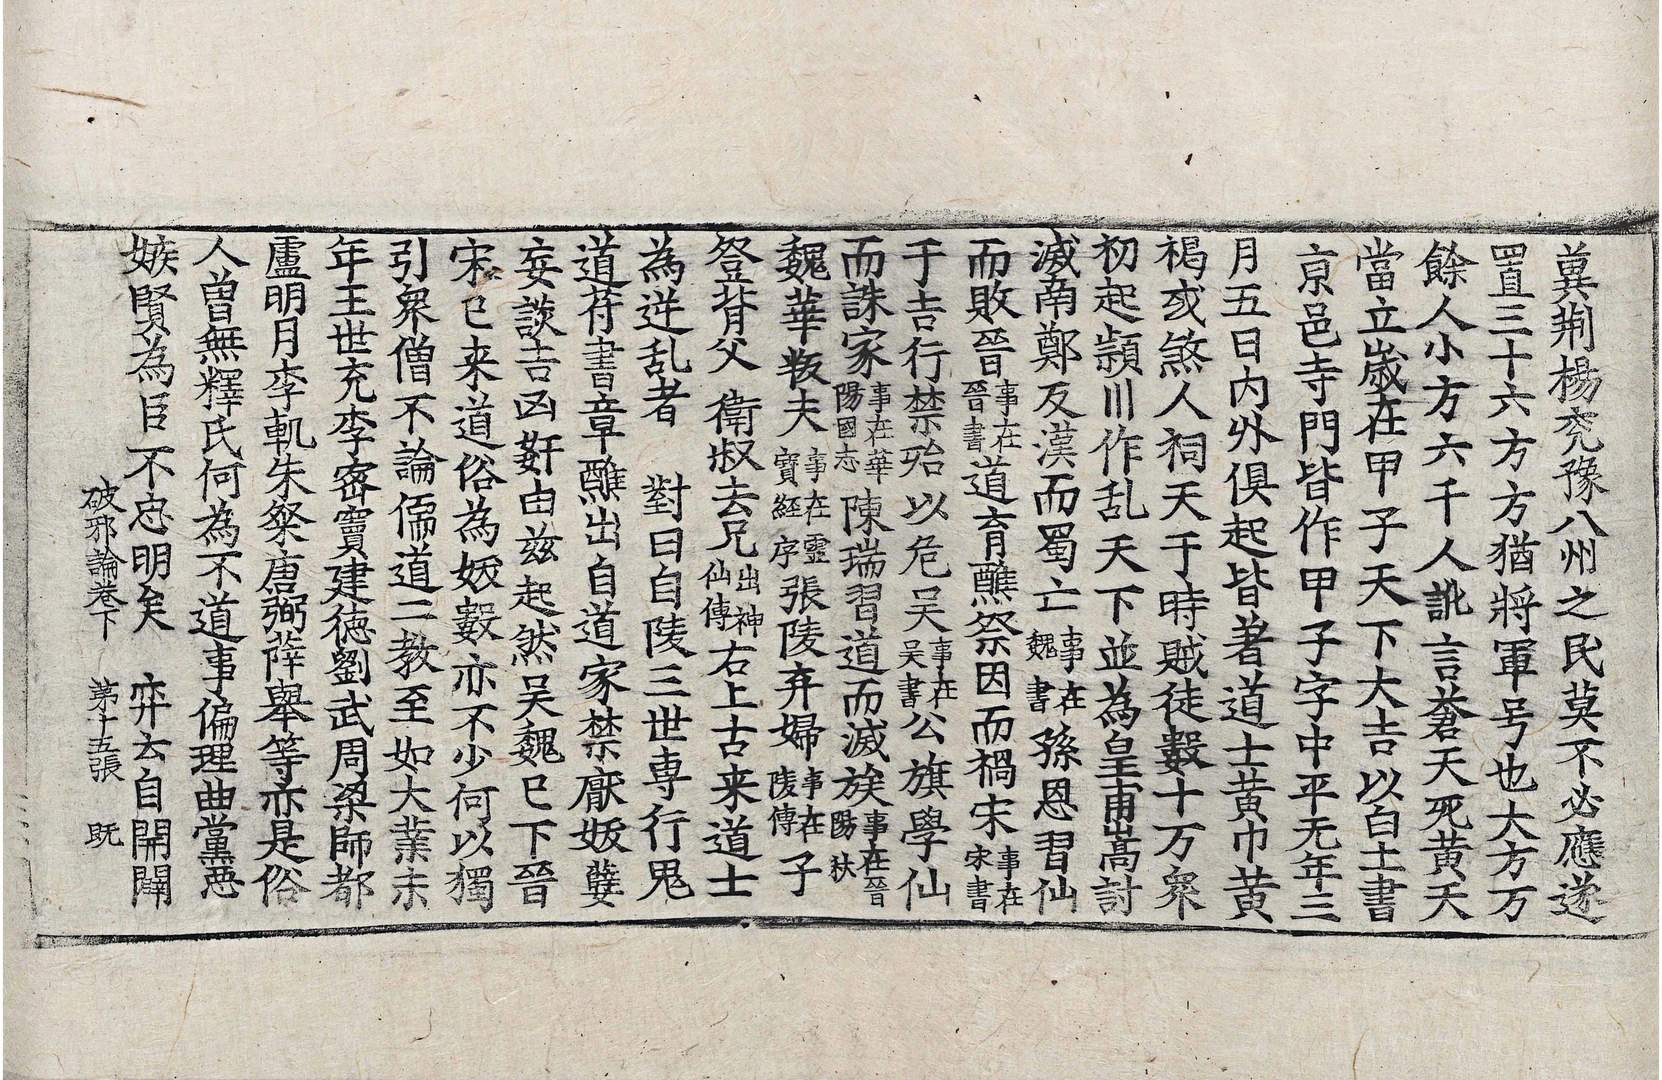 兾荆楊兖豫八州之民莫不必應遂
置三十六方方猶將軍号也大方万
餘人小方六千人訛言蒼天死黄天
當立歲在甲子天下大吉以白土書
京邑寺門皆作甲子字中平元年三
月五日内外俱起皆著道士黄巾黄
褐或煞人祠天于時賊徒數十万衆
初起頴川作乱天下並為皇甫嵩討
滅南鄭反漢而蜀亡事在魏書孫恩習仙
而敗晉事在晉書道育醮祭因而禍宋事在宋書
于吉行禁殆以危吴事在吴書公旗學仙
而誅家事在華陽國志陳瑞習道而滅族事在晉陽秋
魏華叛夫事在靈寶經序張陵弃婦事在陵傳子
登背父 衛叔去兄出神仙傳右上古来道士
為逆乱者 對曰自陵三世専行鬼
道苻書章醮出自道家禁厭妖孽
妄談吉凶姧由兹起然吴魏已下晉
宋已来道俗為妖數亦不少何以獨
引衆僧不論儒道二教至如大業末
年王世充李密竇建德劉武周梁師都
盧明月李軌朱粲唐弼薛舉等亦是俗
人曽無釋氏何為不道事偏理曲黨惡
嫉賢為臣不忠明矣 弈云自開闢
破邪論卷下 第十五張 既